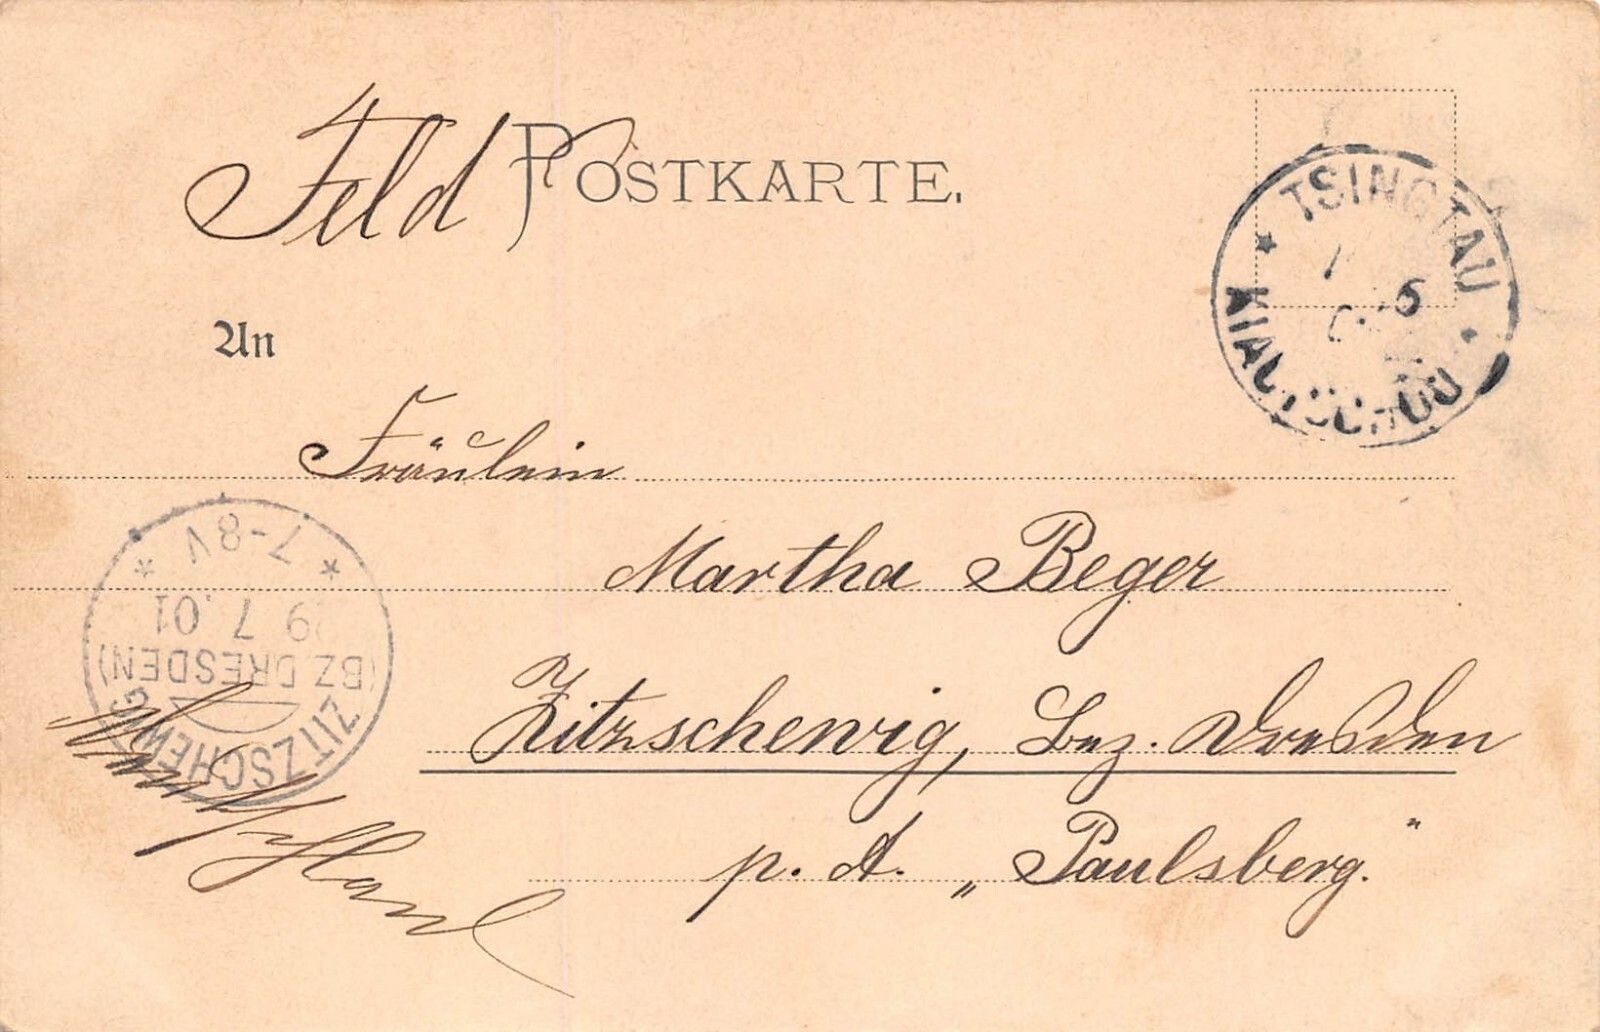 Feld POSTKARTE.
TSINGTAU
6
KIAUTSCHOU
An
Fräulein
Martha Beger
Zitzschewig, Bez. Dresden
p. A. „Paulsberg.“
ZITZSCHEWIG
(BZ. DRESDEN)
29 7.01
7-8V